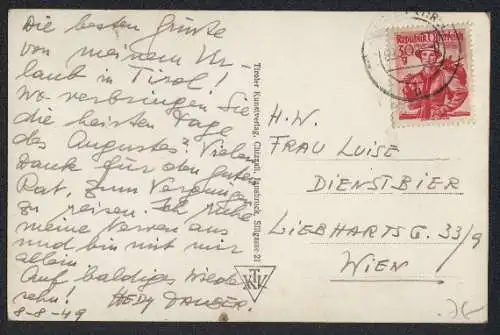 Die besten Grüße
von meinem Ur-
laub in Tirol!
Wo verbringen Sie
die heißen Tage
des Augustes? Vielen
Dank für den guten
Rat, zum Vergnügen
zu reisen. Ich ruhe
meine Nerven aus
und bin mit mir
allein.
Auf baldiges Wieder-
sehn! HEDY
8-8-49
Tiroler Kunstverlag, Chizzali, Innsbruck, Sillgasse 21
TKV
Republik Österreich
30
H.W.
FRAU LUISE
DIENSTBIER
LIEBHARTSG. 33/9
WIEN